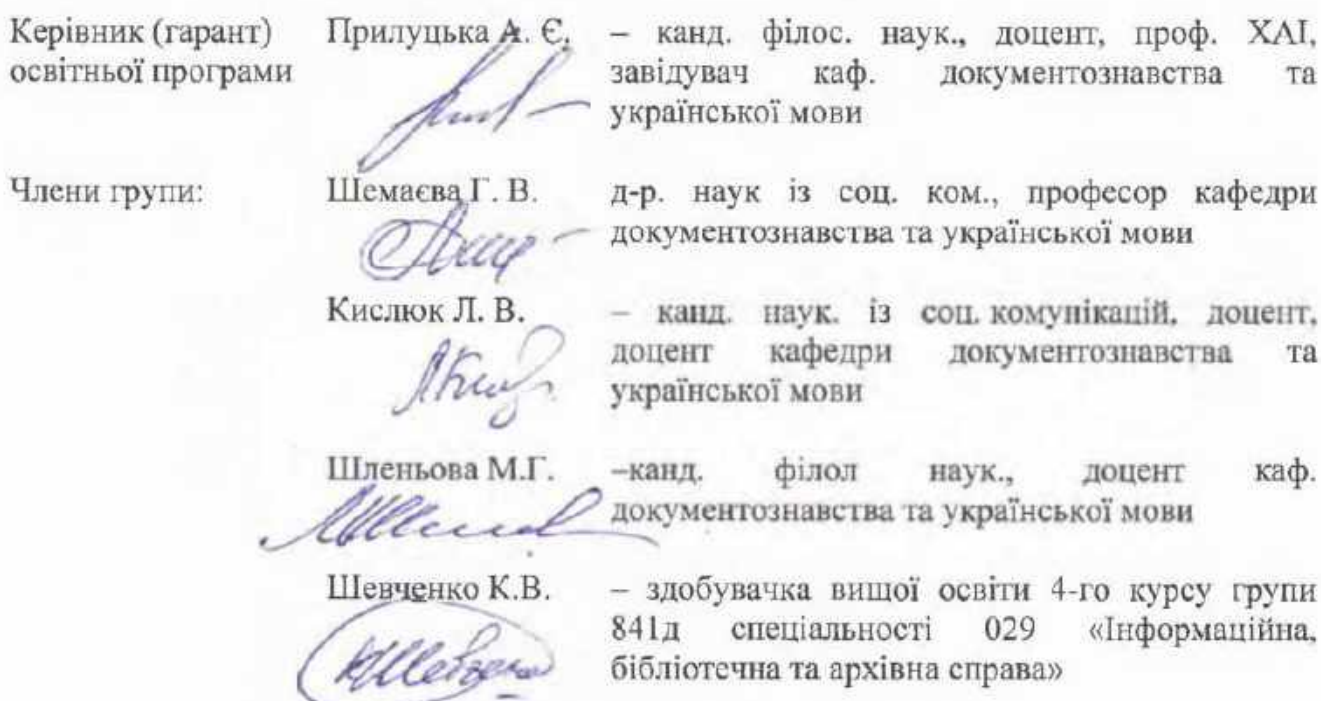 Керівник (гарант) Прилуцька А. Є. – канд. філос. наук., доцент, проф. ХАІ,
освітньої програми завідувач каф. документознавства та
української мови
Члени групи: Шемаєва Г. В. д-р. наук із соц. ком., професор кафедри
документознавства та української мови
Кислюк Л. В. – канд. наук. із соц. комунікацій, доцент,
доцент кафедри документознавства та
української мови
Шленьова М.Г. –канд. філол наук., доцент каф.
документознавства та української мови
Шевченко К.В. – здобувачка вищої освіти 4-го курсу групи
841д спеціальності 029 «Інформаційна,
бібліотечна та архівна справа»